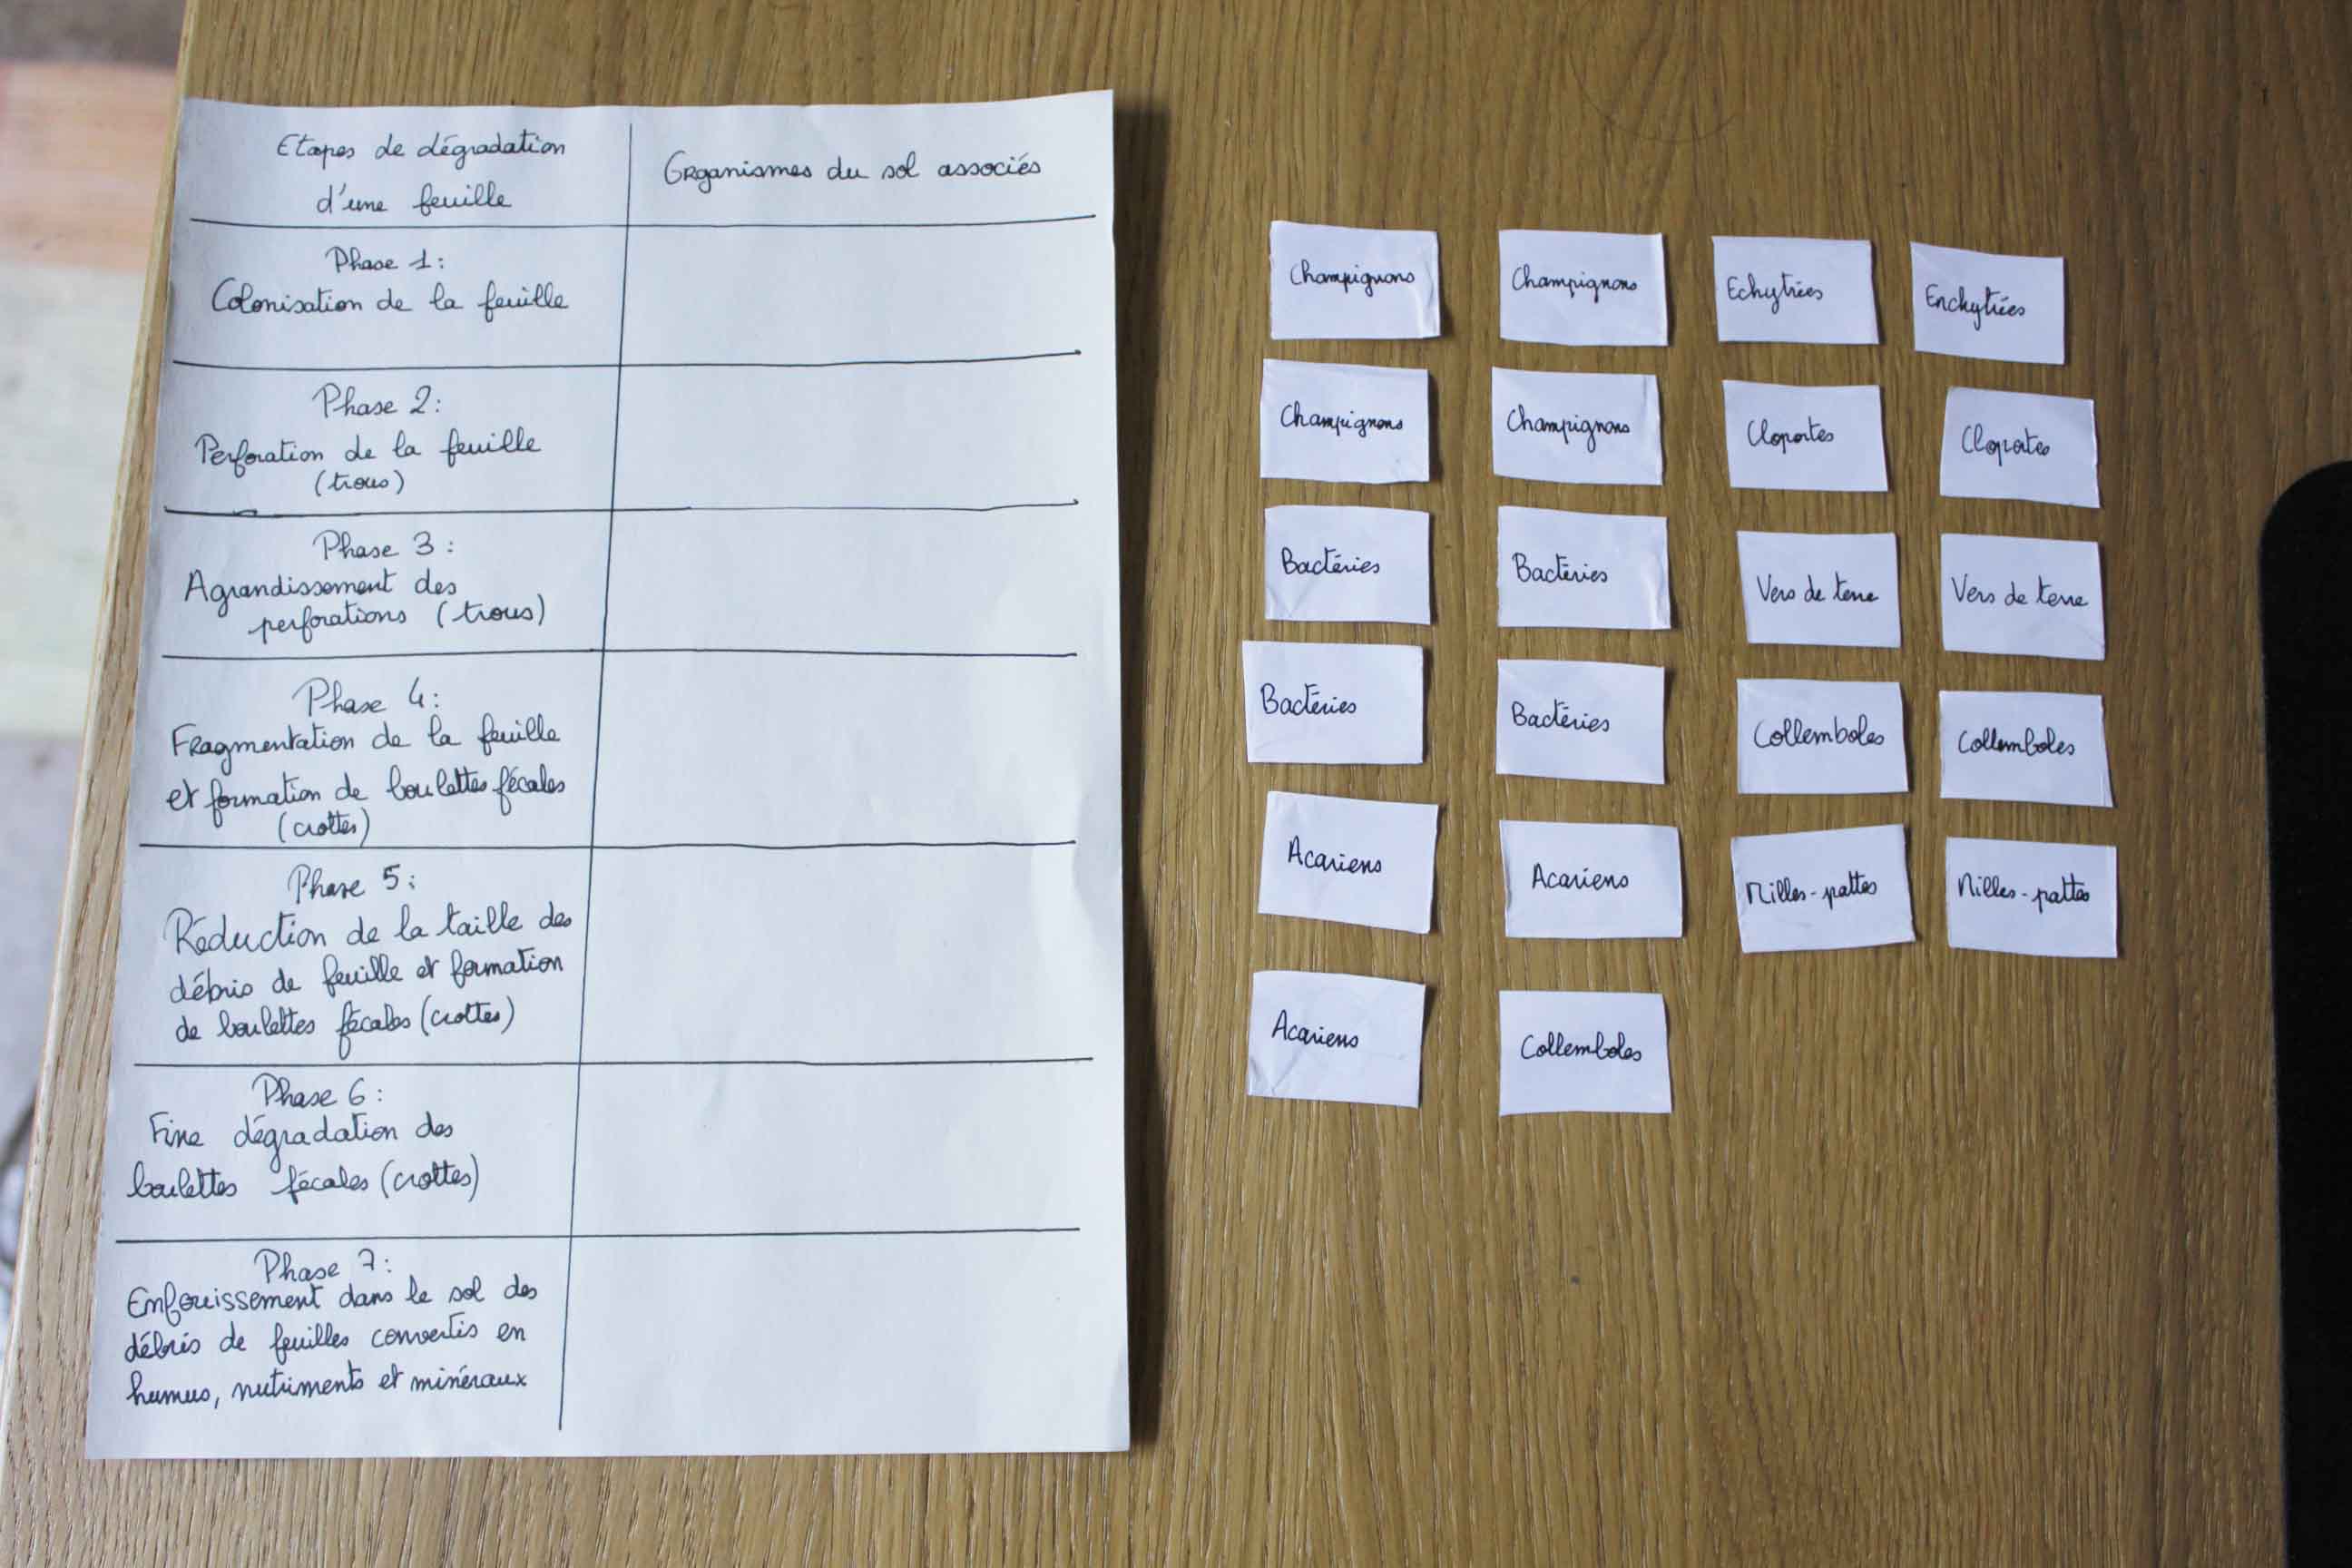 Etapes de dégradation
d'une feuille
Organismes du sol associés
Phase 1:
Colonisation de la feuille
Phase 2:
Perforation de la feuille
(trous)
Phase 3:
Agrandissement des
perforations (trous)
Phase 4:
Fragmentation de la feuille
et formation de boulettes fécales
(crottes)
Phase 5:
Réduction de la taille des
débris de feuille et formation
de boulettes fécales (crottes)
Phase 6:
Fine dégradation des
boulettes fécales (crottes)
Phase 7:
Enfouissement dans le sol des
débris de feuilles convertis en
humus, nutriments et minéraux
Champignons
Champignons
Echytrées
Enchytrées
Champignons
Champignons
Cloportes
Cloportes
Bactéries
Bactéries
Vers de terre
Vers de terre
Bactéries
Bactéries
Collemboles
Collemboles
Acariens
Acariens
Milles-pattes
Milles-pattes
Acariens
Collemboles